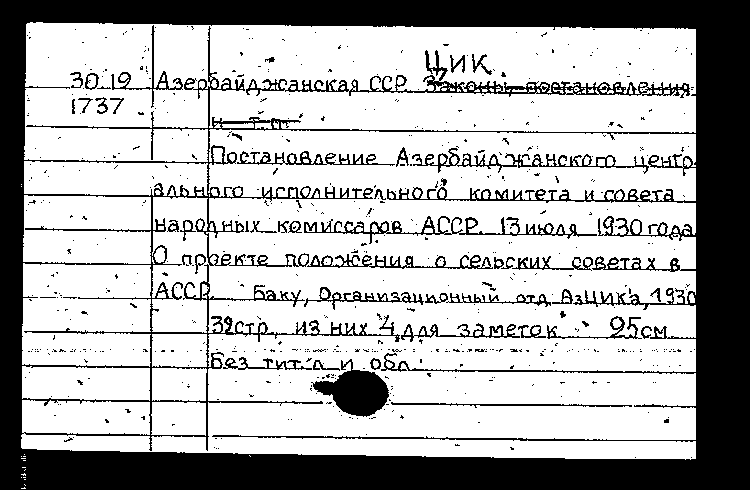 ЦИК
30.19 Азербайджанская ССР. Законы, постановления
1737
и т.п.
Постановление Азербайджанского центр-
ального исполнительного комитета и совета
народных комиссаров АССР. 13 июля 1930 года
О проекте положения о сельских советах в
АССР. Баку, Организационный отд. АзЦИК'а, 1930
32стр., из них 4 для заметок 25см
Без тит. л и обл.